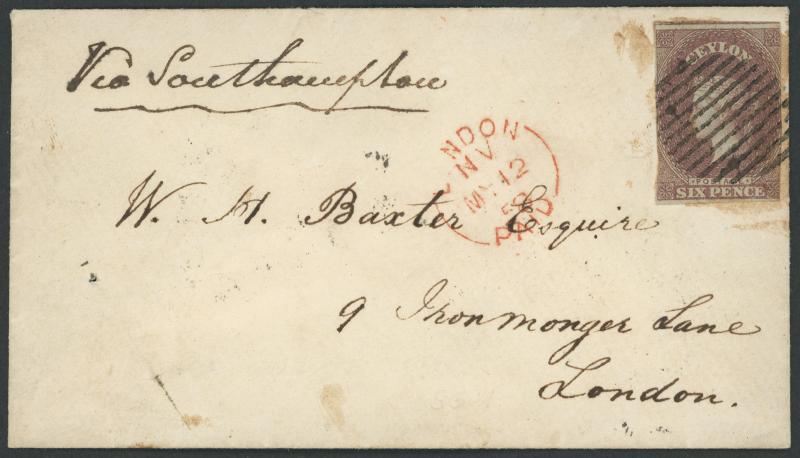 Via Southampton
CEYLON
POSTAGE
SIX PENCE
LONDON
NV
MY 12
PAID
W. H. Baxter Esquire
9 Ironmonger Lane
London.